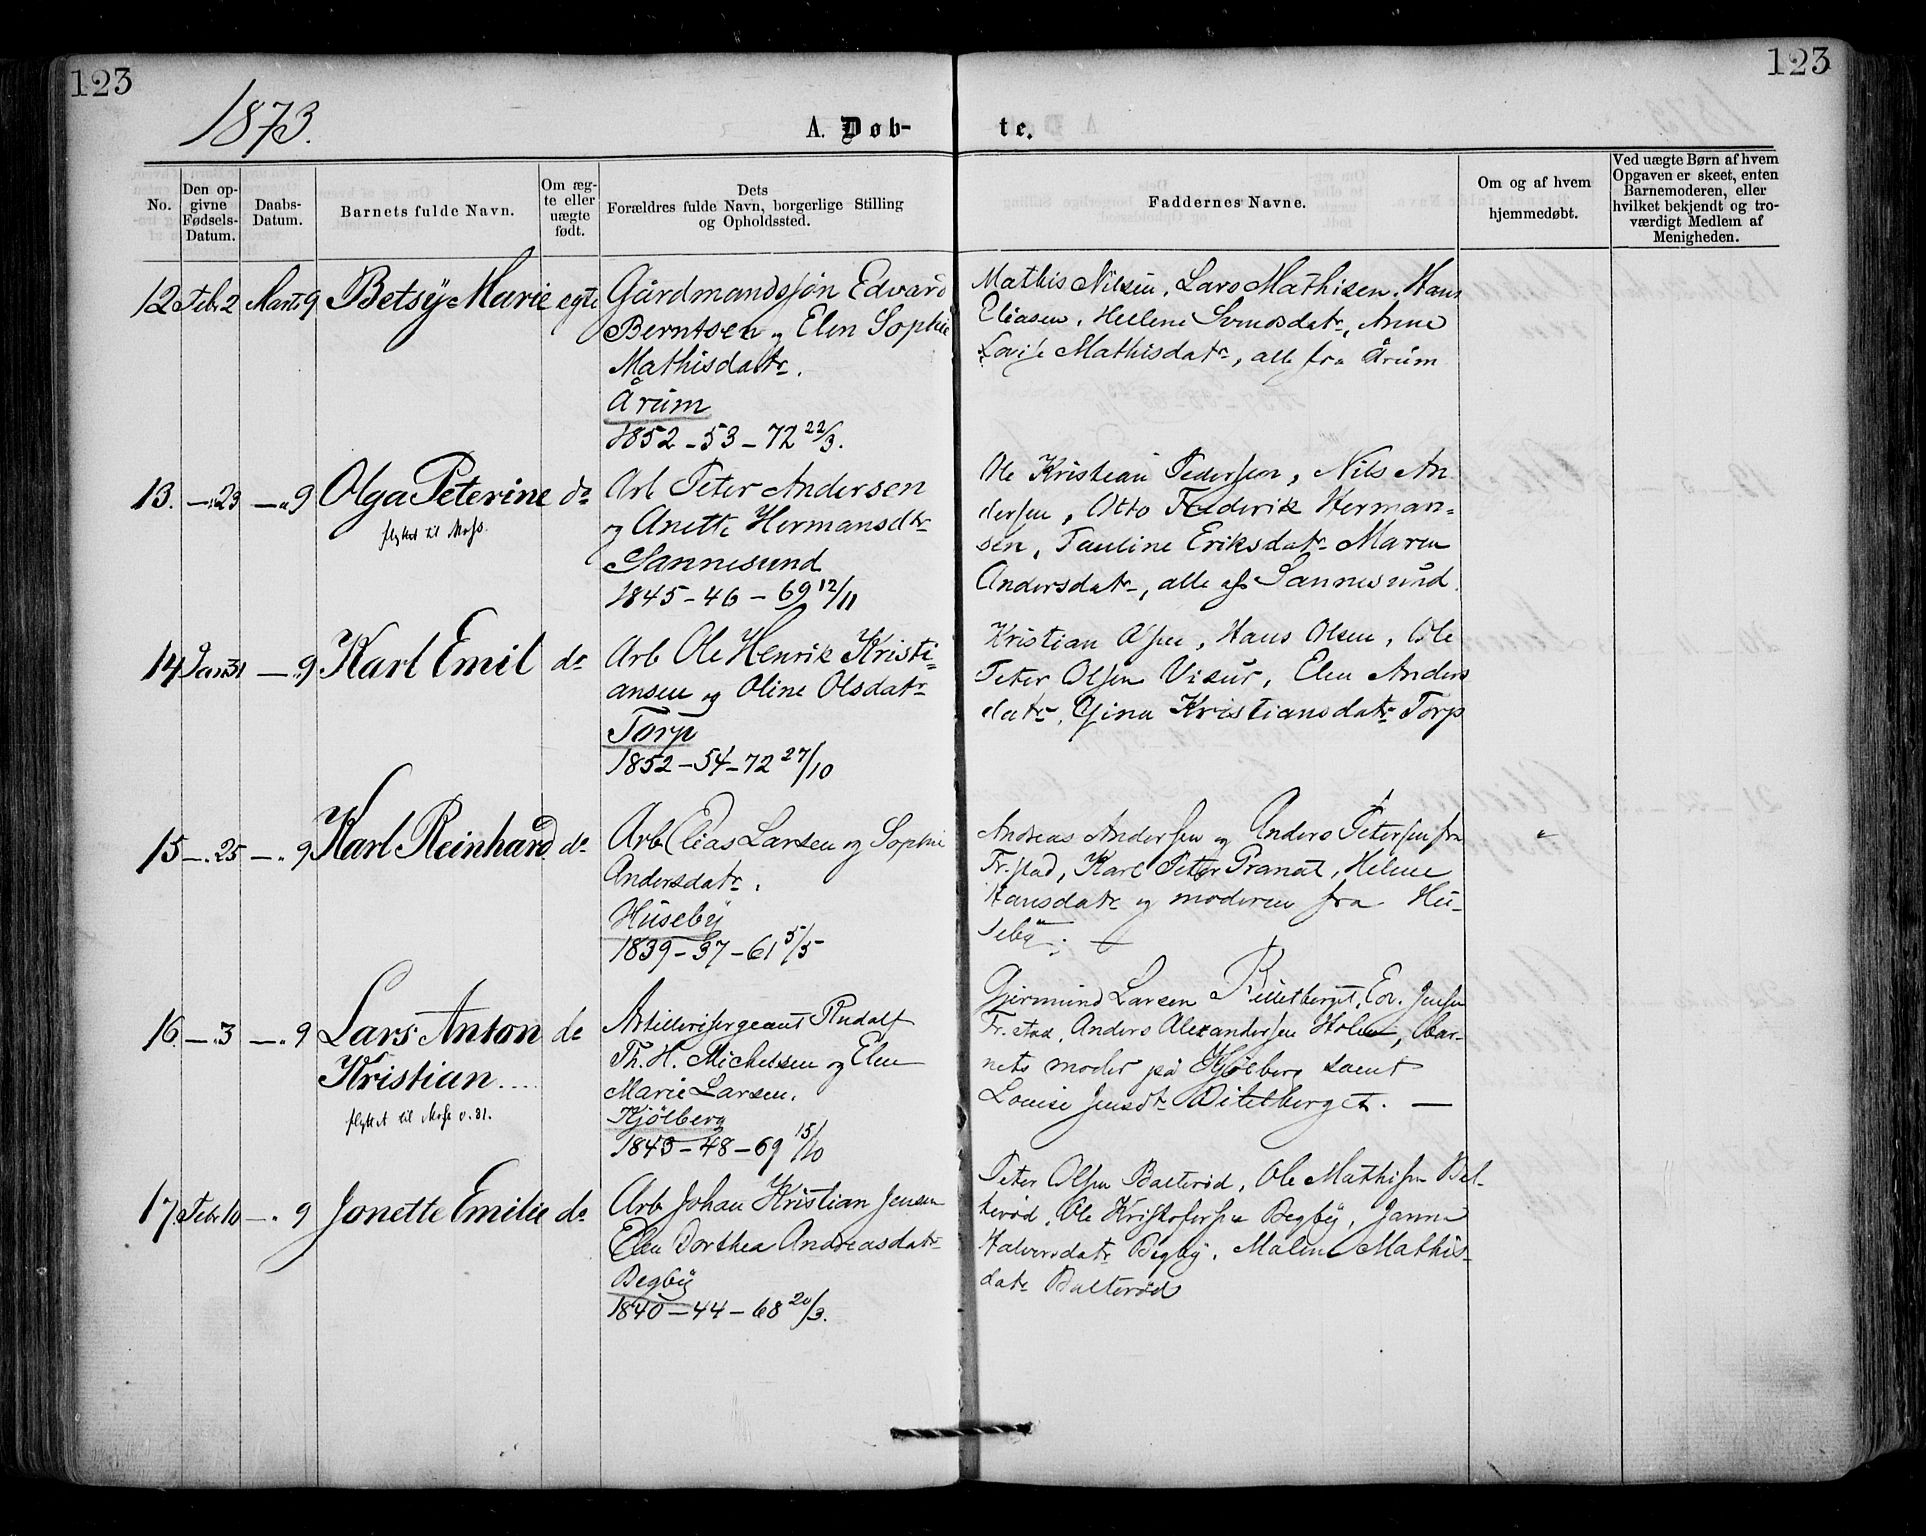 123
123
1873.
A. Døb-
te.
No.
Den op-
givne
Fødsels-
Datum.
Daabs-
Datum.
Barnets fulde Navn.
Om æg-
te eller
uægte
født.
Dets
Forældres fulde Navn, borgerlige Stilling
og Opholdssted.
Faddernes Navne.
Om og af hvem
hjemmedøbt.
Ved uægte Børn af hvem
Opgaven er skeet, enten
Barnemoderen, eller
hvilket bekjendt og tro-
værdigt Medlem af
Menigheden.
12 Febr. 2 Marts 9 Betsÿ Marie egte
Gårdmandssøn Edvard
Berntsen og Elen Sophie
Mathisdatr.
Årum
1852 - 53 - 72 22/3.
Mathis Nilsen, Lars Mathisen, Hans
Eliasen, Hellene datr, Anne
Mathisdatr, alle fra Årum
13. -"- 23 -"- 9 Olga Peterine do
flyttet til Moss.
Arb Peter Andersen
og Anette Hermansdtr
Sannesund
1845 - 46 - 69 12/11
Ole Kristian Pedersen, Nils An
dersen, Otto Frederik Herman=
sen, Pauline Eriksdatr Maren
Andersdatr, alle af Sannesund.
14 Jan 31 -"- 9 Karl Emil do
Arb Ole Henrik Kristi=
ansen og Oline Olsdatr
Torp
1852 - 54 - 72 27/10
Kristian Olsen, Hans Olsen, Ole
Peter Olsen Visur, Elen Anders
datr, Gina Kristiansdatr Torp
15 -"- 25 -"- 9 Karl Reinhard do
Arb Elias Larsen og Sophie
Andersdatr.
Huseby
1839 - 37 - 61 5/5
Andreas Andersen og Anders Petersen fra
Fr.stad, Karl Peter Granat, Helene
Hansdatr og moderen fra Hu-
seby. -
"
16. -"- 3 -"- 9 Lars Anton do
Kristian....
flyttet til Moss v. 31.
Artillerisergeant Rudolf
Th. H. Michelsen og Elen
Marie Larsen.
Kjölberg
1843 - 48 - 69 15/10
Gjermund Larsen Ed. Jensen
Fr.stad, Anders Alexandersen Holen, bar-
nets moder på Kjølberg samt
Louise Jensdtr -
17. Febr. 10 -"- 9 Jonette Emilie do
Arb Johan Kristian Jensen
Elen Dorthea Andreasdatr
Begbÿ
1840 - 44 - 68 20/3.
Peter Olsen Balterød, Ole Mathisen Bal-
terød, Ole Kristofersen Begbÿ, Janna
Halvorsdatr Begbÿ, Malene Mathis-
datr Balterød